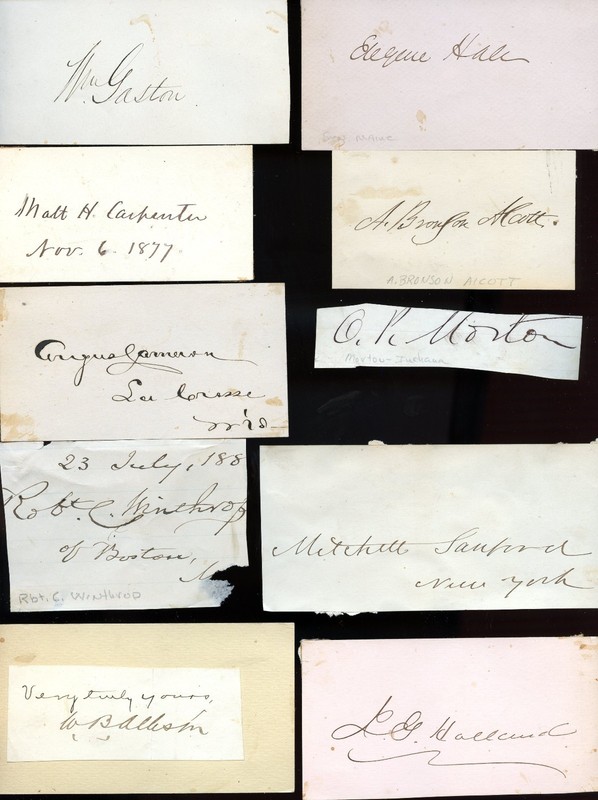 Wm Gaston
Eugene Hale
Sen Maine
Matt H. Carpenter
Nov. 6. 1877
A. Bronson Alcott.
A. BRONSON ALCOTT
Angus Cameron
La Crosse
Wis
O. P. Morton
Morton - Indiana
23 July, 188
Robt. C. Winthrop
of Boston,
M
Rbt. C. WINTHROP
Mitchell Sanford
New York
Very truly yours,
W B Allison
J. G. Holland